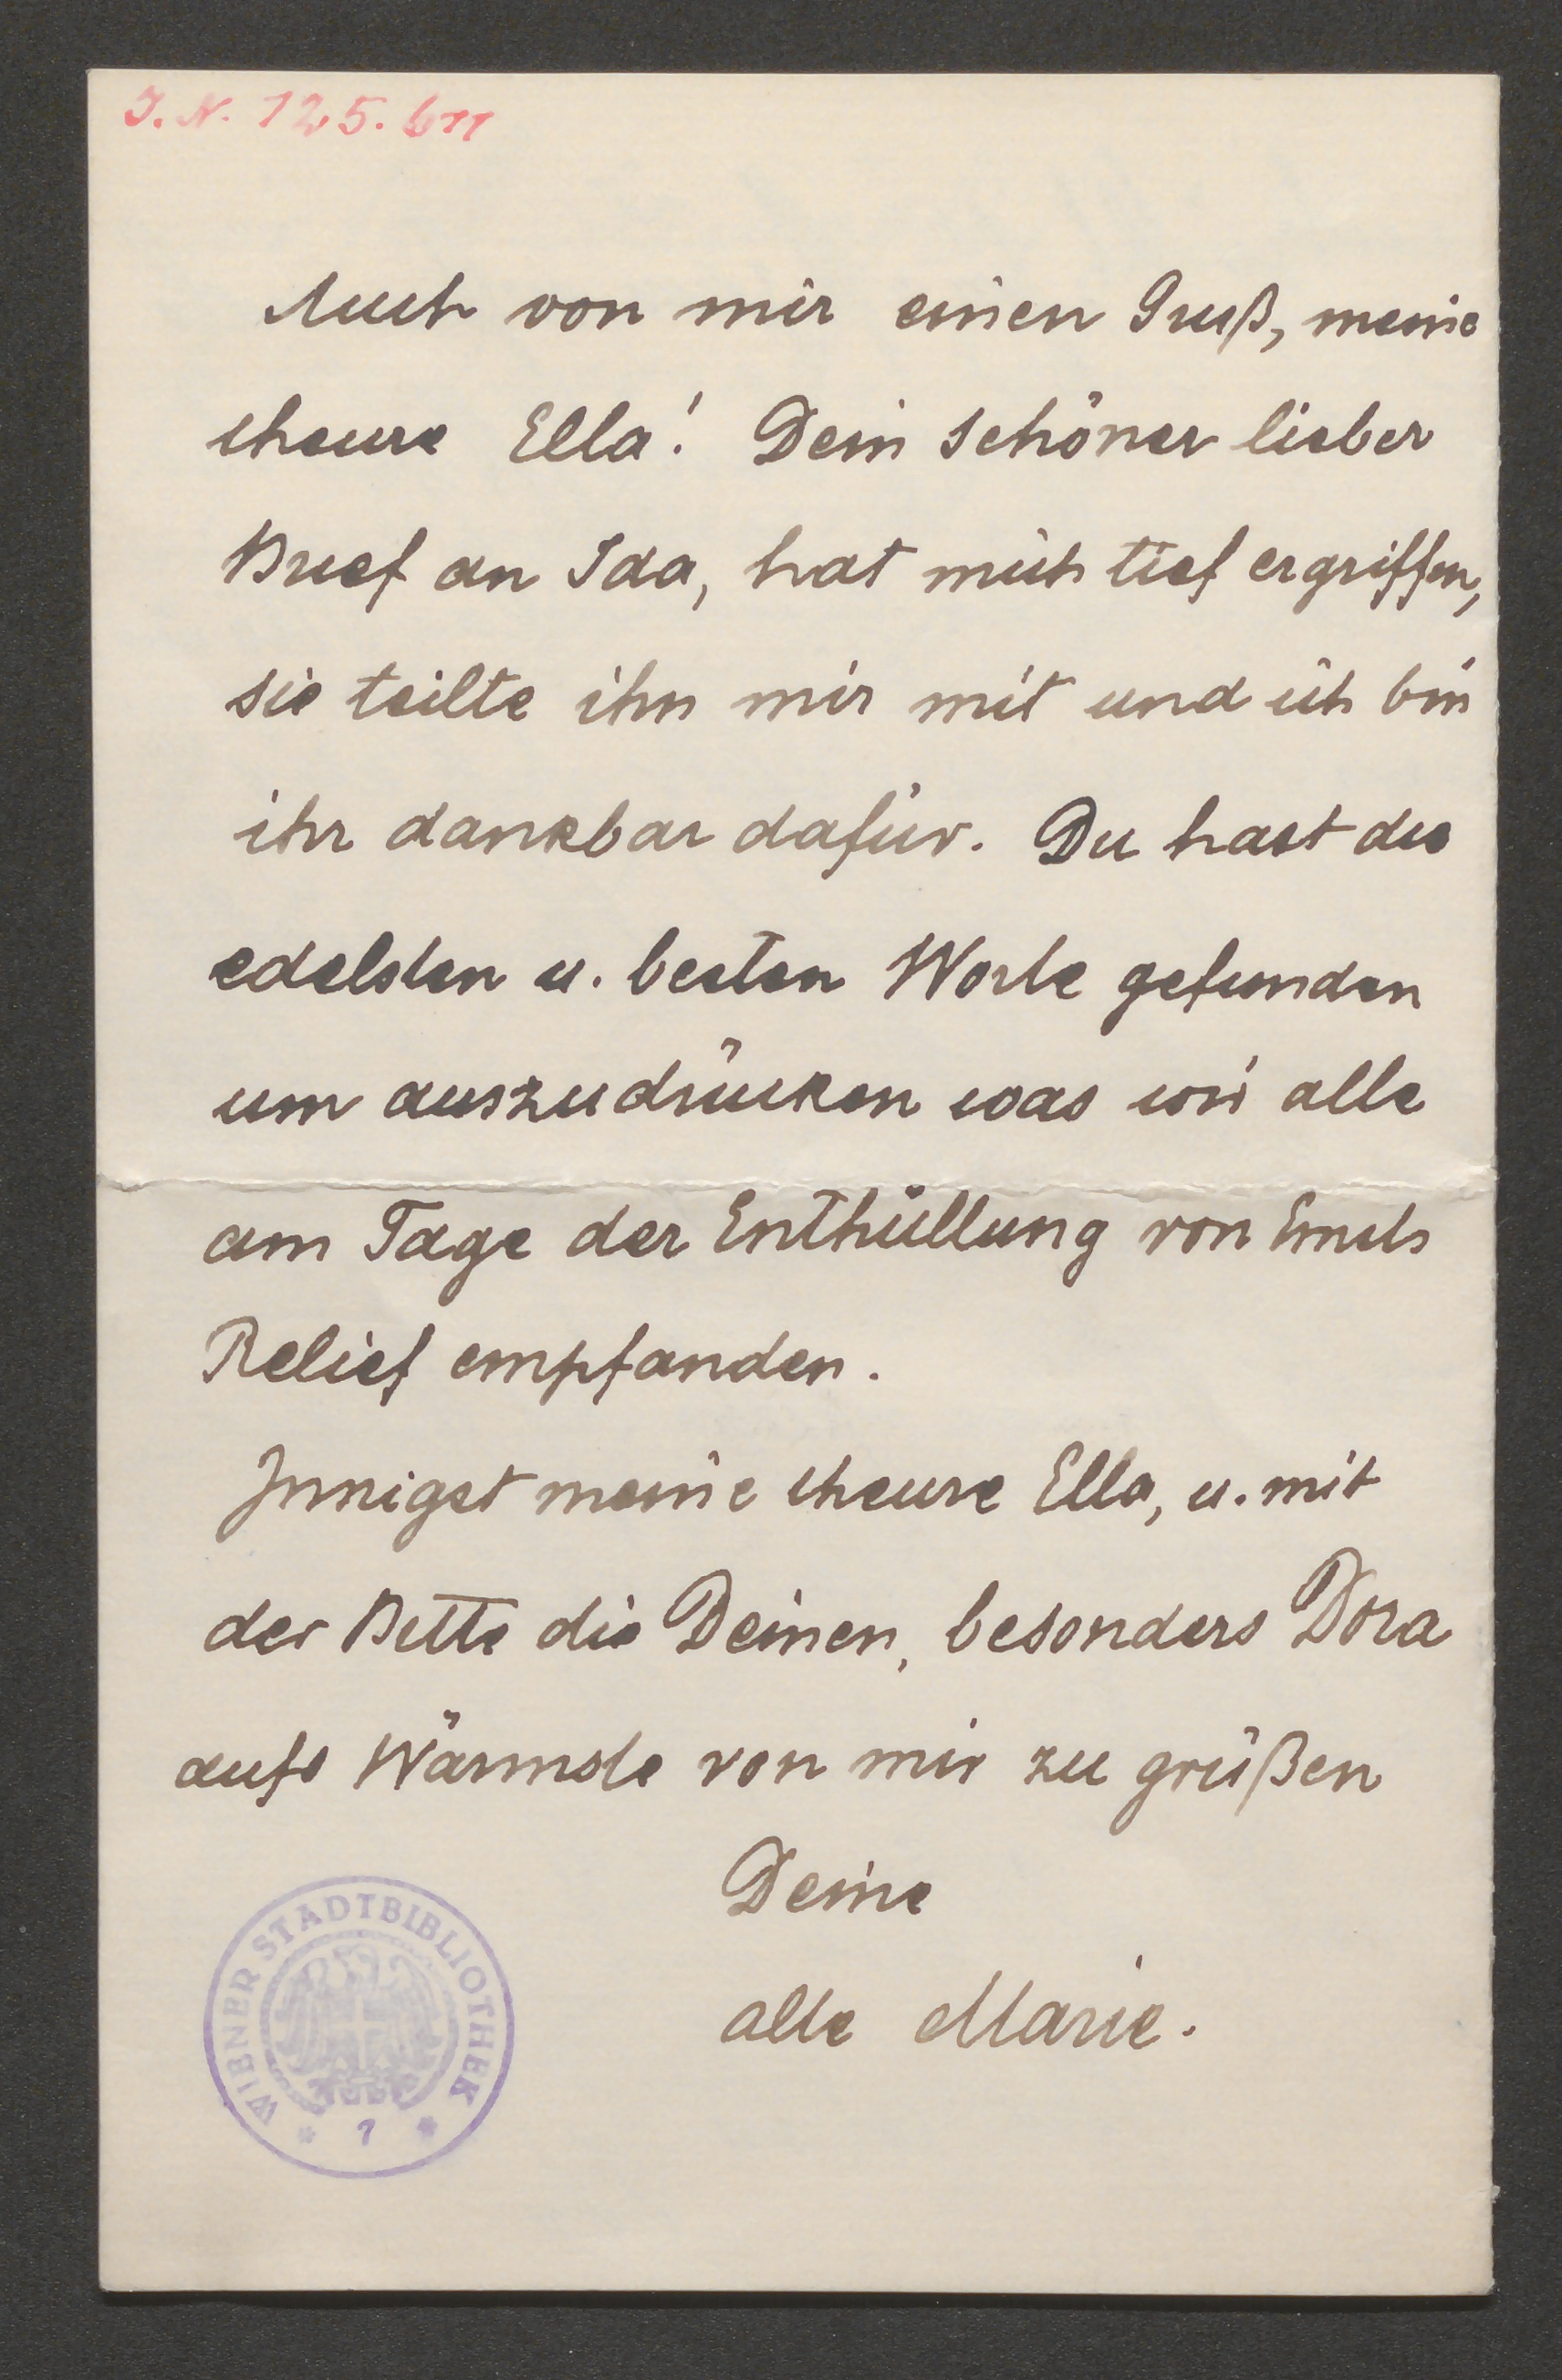 I. N. 125.611
Auch von mir einen Gruß, meine
theure Ella! Dein schöner lieber
Brief an Ida, hat mich tief ergriffen,
sie teilte ihn mir mit und ich bin
ihr dankbar dafür. Du hast die
edelsten u. besten Worte gefunden
um auszudrücken was wir alle
am Tage der Enthüllung von Emils
Relief empfanden.
Innigst meine theure Ella, u. mit
der Bitte die Deinen, besonders Dora
aufs Wärmste von mir zu grüßen
Deine
alte Marie.
WIENER STADTBIBLIOTHEK
* 1 *